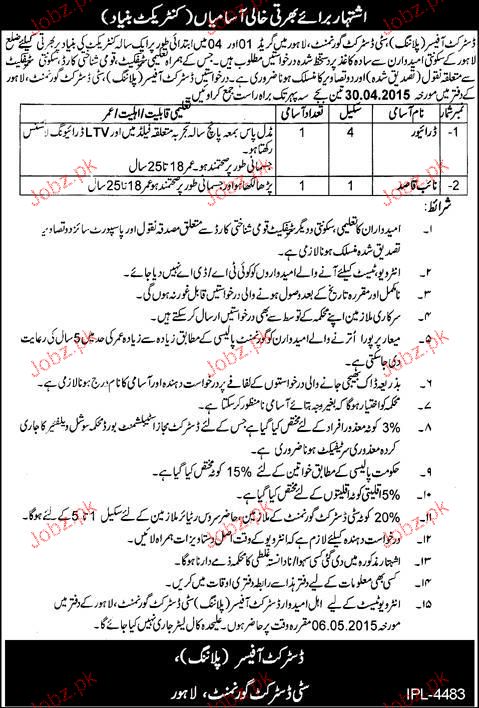 اشتہار برائے بھرتی خالی آسامیاں (کنٹریکٹ بنیاد)
ڈسٹرکٹ آفیسر (پلاننگ) سٹی ڈسٹرکٹ گورنمنٹ، لاہور میں گریڈ 01 اور 04 میں ابتدائی طور پر ایک سالہ کنٹریکٹ کی بنیاد پر بھرتی کیلئے ضلع
لاہور کے سکونتی امیدواران سے سادہ کاغذ پر دستخط شدہ درخواستیں مطلوب ہیں۔ جس کے ہمراہ تعلیمی سرٹیفکیٹ، قومی شناختی کارڈ، سکونتی سرٹیفکیٹ
سے متعلقہ نقول (تصدیق شدہ) اور دو تصاویر کا منسلک ہونا ضروری ہے۔ درخواستیں ڈسٹرکٹ آفیسر (پلاننگ) سٹی ڈسٹرکٹ گورنمنٹ، لاہور
کے دفتر میں مورخہ 30.04.2015 تین بجے سہ پہر تک براہ راست جمع کرائیں۔
نمبر شمار نام آسامی سکیل تعداد آسامی تعلیمی قابلیت / اہلیت / عمر
1- ڈرائیور 4 1 مڈل پاس بمعہ پانچ سالہ تجربہ متعلقہ فیلڈ میں اور LTV ڈرائیونگ لائسنس
رکھتا ہو۔
جسمانی طور پر صحتمند ہو۔ عمر 18 تا 25 سال
2- نائب قاصد 1 1 پڑھا لکھا ہو اور جسمانی طور پر صحتمند ہو عمر 18 تا 25 سال
شرائط:
۱۔ امیدواران کا تعلیمی، سکونتی و دیگر سرٹیفکیٹ قومی شناختی کارڈ سے متعلق مصدقہ نقول اور پاسپورٹ سائز دو تصاویر
تصدیق شدہ منسلک ہونا لازمی ہے۔
۲۔ انٹرویو، ٹیسٹ کیلئے آنے والے امیدواروں کو کوئی ٹی اے / ڈی اے نہیں دیا جائے گا۔
۳۔ نامکمل اور مقررہ تاریخ کے بعد وصول ہونے والی درخواستیں قابل غور نہ ہوں گی۔
۴۔ سرکاری ملازمین اپنے محکمہ کے توسط سے بھی درخواستیں ارسال کر سکتے ہیں۔
۵۔ معیار پر پورا اُترنے والے امیدواران کو گورنمنٹ پالیسی کے مطابق زیادہ سے زیادہ عمر کی حد میں 5 سال کی رعایت
دی جا سکتی ہے۔
۶۔ بذریعہ ڈاک بھیجی جانے والی درخواستوں کے لفافے پر درخواست دہندہ اور آسامی کا نام درج ہونا لازمی ہے۔
۷۔ محکمہ کو اختیار ہو گا کہ بغیر وجہ بتائے آسامی نامنظور کر سکتا ہے۔
۸۔ 3% کوٹہ معذور افراد کے لئے مختص کیا گیا ہے جس کے لئے ڈسٹرکٹ مجاز اسٹیبلشمنٹ بورڈ محکمہ سوشل ویلفئیر کا جاری
کردہ معذوری سرٹیفکیٹ ہونا ضروری ہے۔
۹۔ حکومت پالیسی کے مطابق خواتین کے لئے 15% کوٹہ مختص کیا گیا ہے۔
۱۰۔ 5% اقلیتی کوٹہ اقلیتوں کے لئے مختص کیا گیا ہے۔
۱۱۔ 20% کوٹہ سٹی ڈسٹرکٹ گورنمنٹ کے ملازمین، حاضر سروس ریٹائر ملازمین کے لئے سکیل 1 تا 5 کے لئے ہو گا۔
۱۲۔ درخواست دہندہ کیلئے لازم ہے کہ انٹرویو کے وقت اصل دستاویزات ہمراہ لائیں۔
۱۳۔ اشتہار مذکورہ میں دی گئی کسی سہوا / نا دانستہ غلطی کا محکمہ ذمے دار نا ہو گا۔
۱۴۔ کسی بھی معلومات کے لیے دفتر ہذا سے رابطہ دفتری اوقات میں کریں۔
۱۵۔ انٹرویو ٹیسٹ کے لیے اہل امیدوار ڈسٹرکٹ آفیسر (پلاننگ) سٹی ڈسٹرکٹ گورنمنٹ، لاہور کے دفتر میں
مورخہ 06.05.2015 مقررہ وقت پر حاضر ہوں۔ علیحدہ کال لیٹر جاری نہیں کیا جائے گا۔
ڈسٹرکٹ آفیسر (پلاننگ)،
سٹی ڈسٹرکٹ گورنمنٹ، لاہور
IPL-4483
Jobz.pk